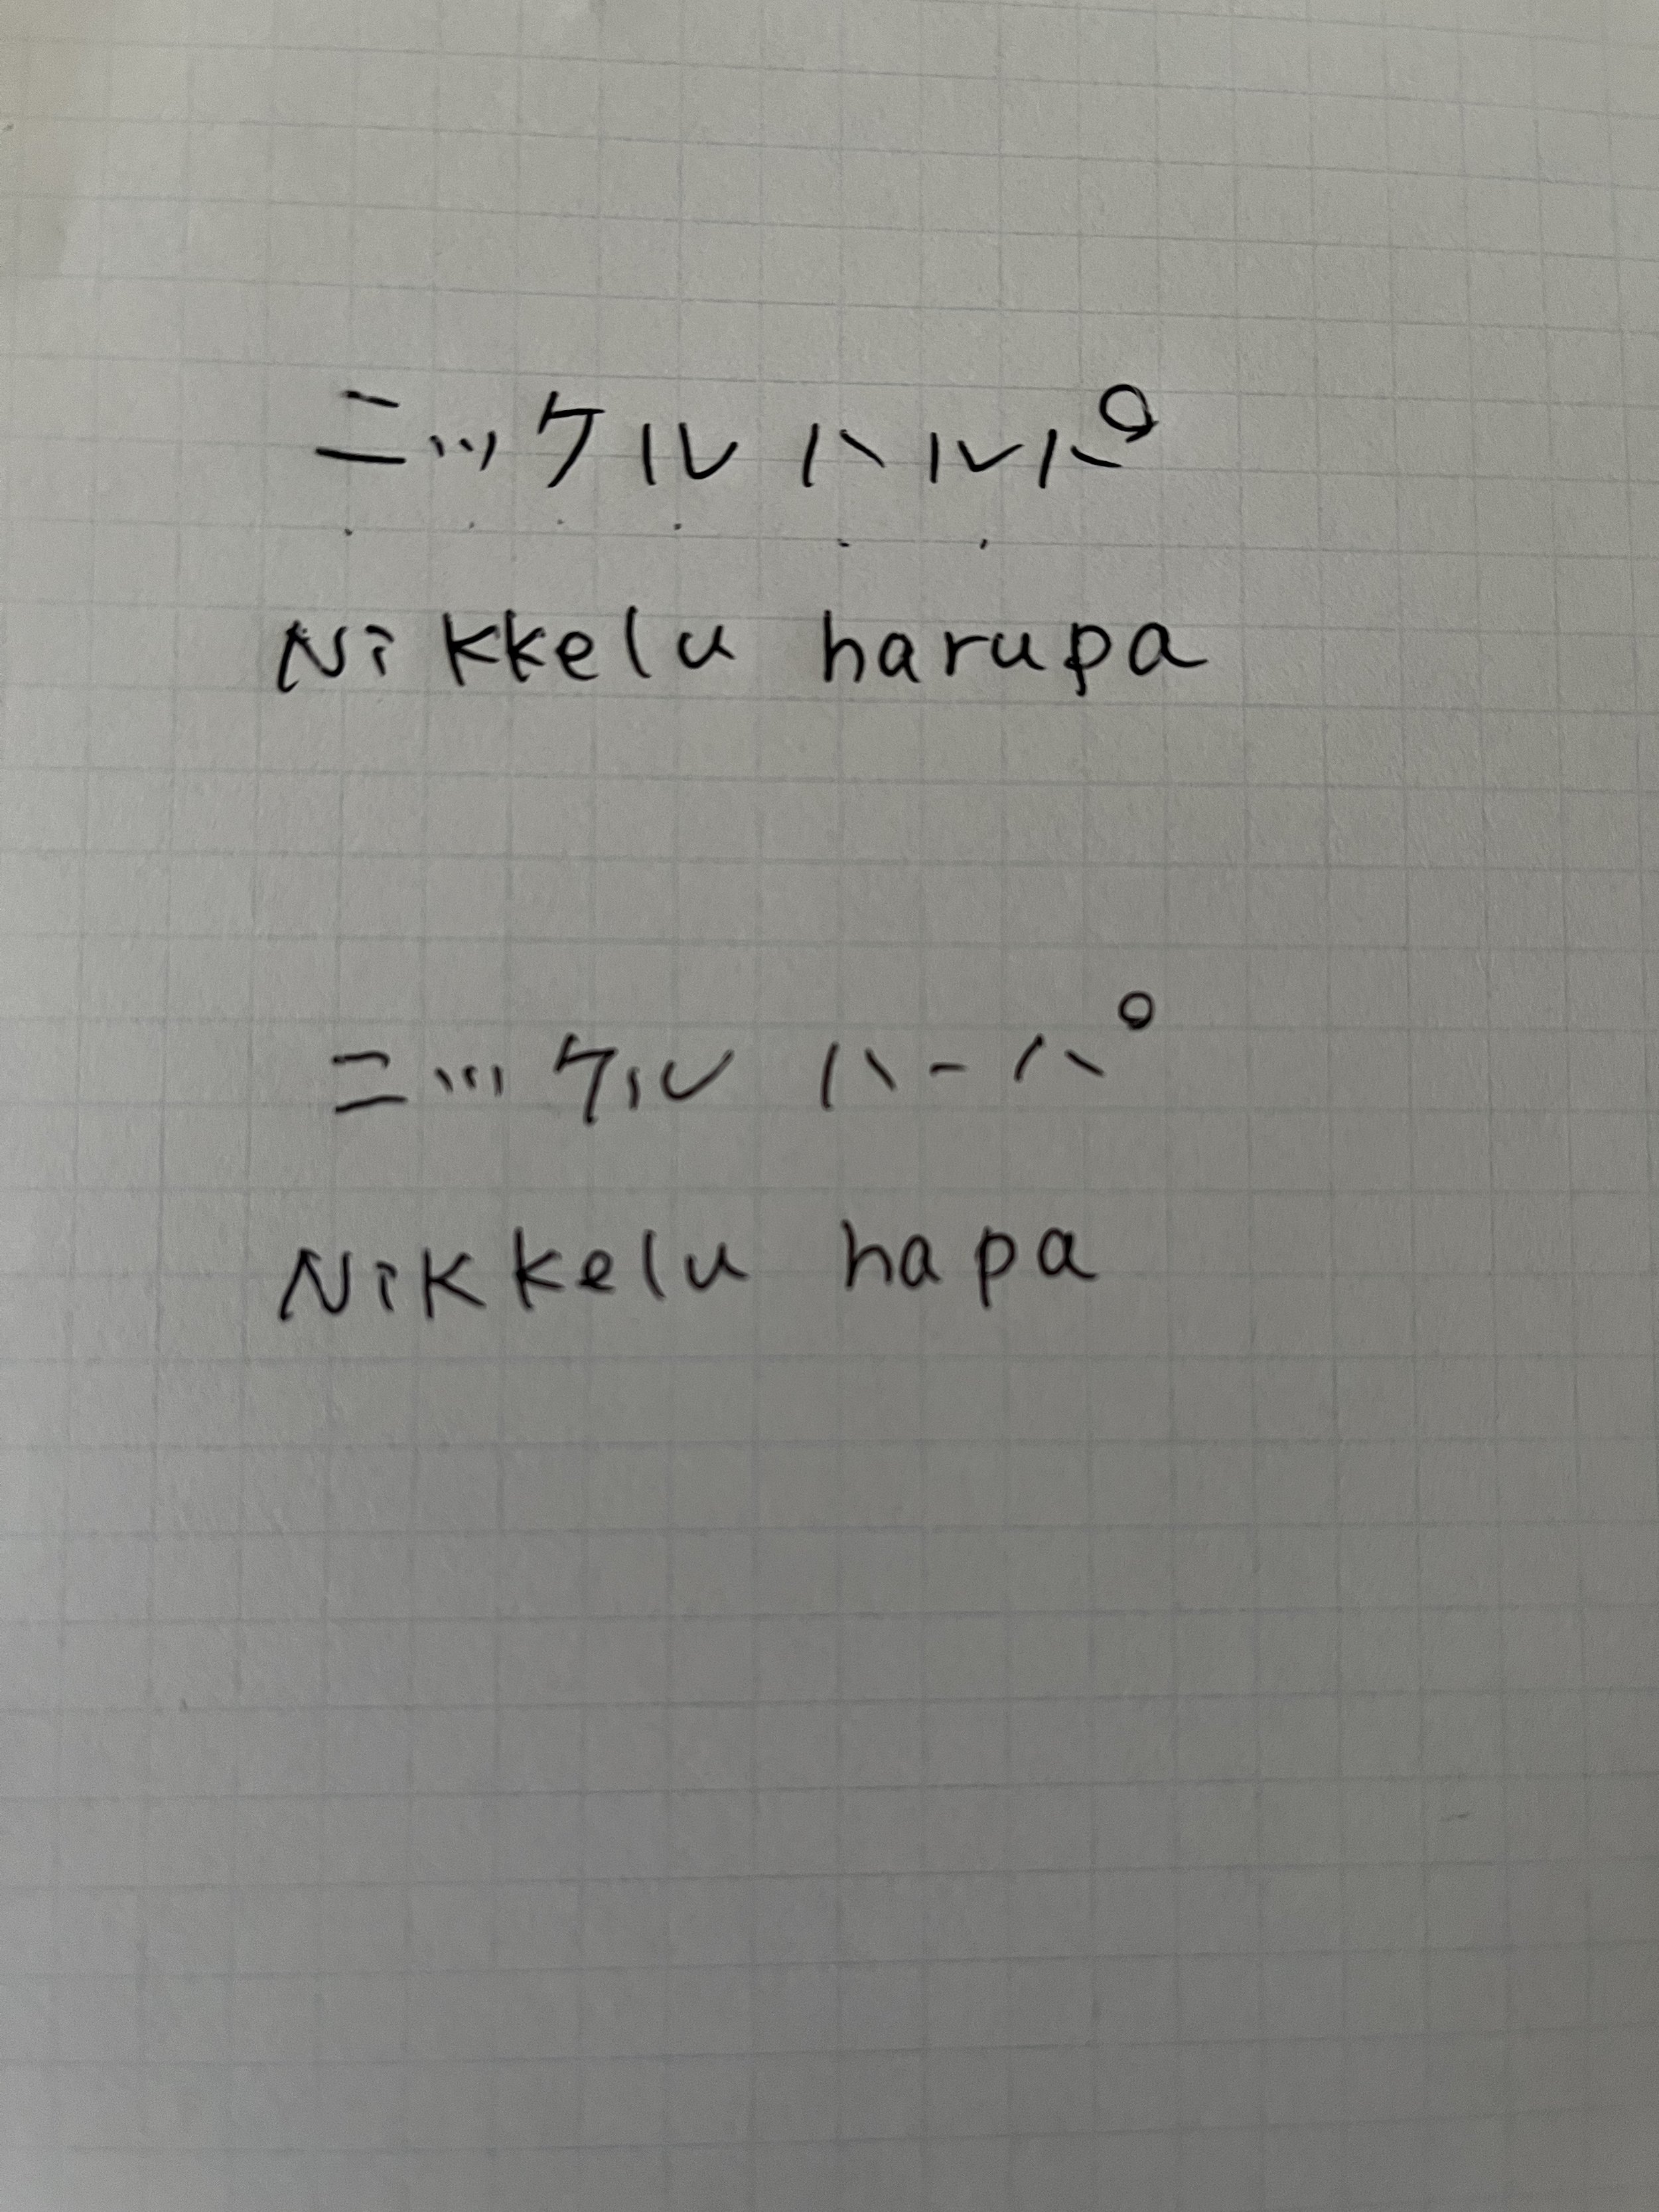 ニッケルハルパ
Nikkelu harupa
ニッケル ハーパ
Nikkelu hapa